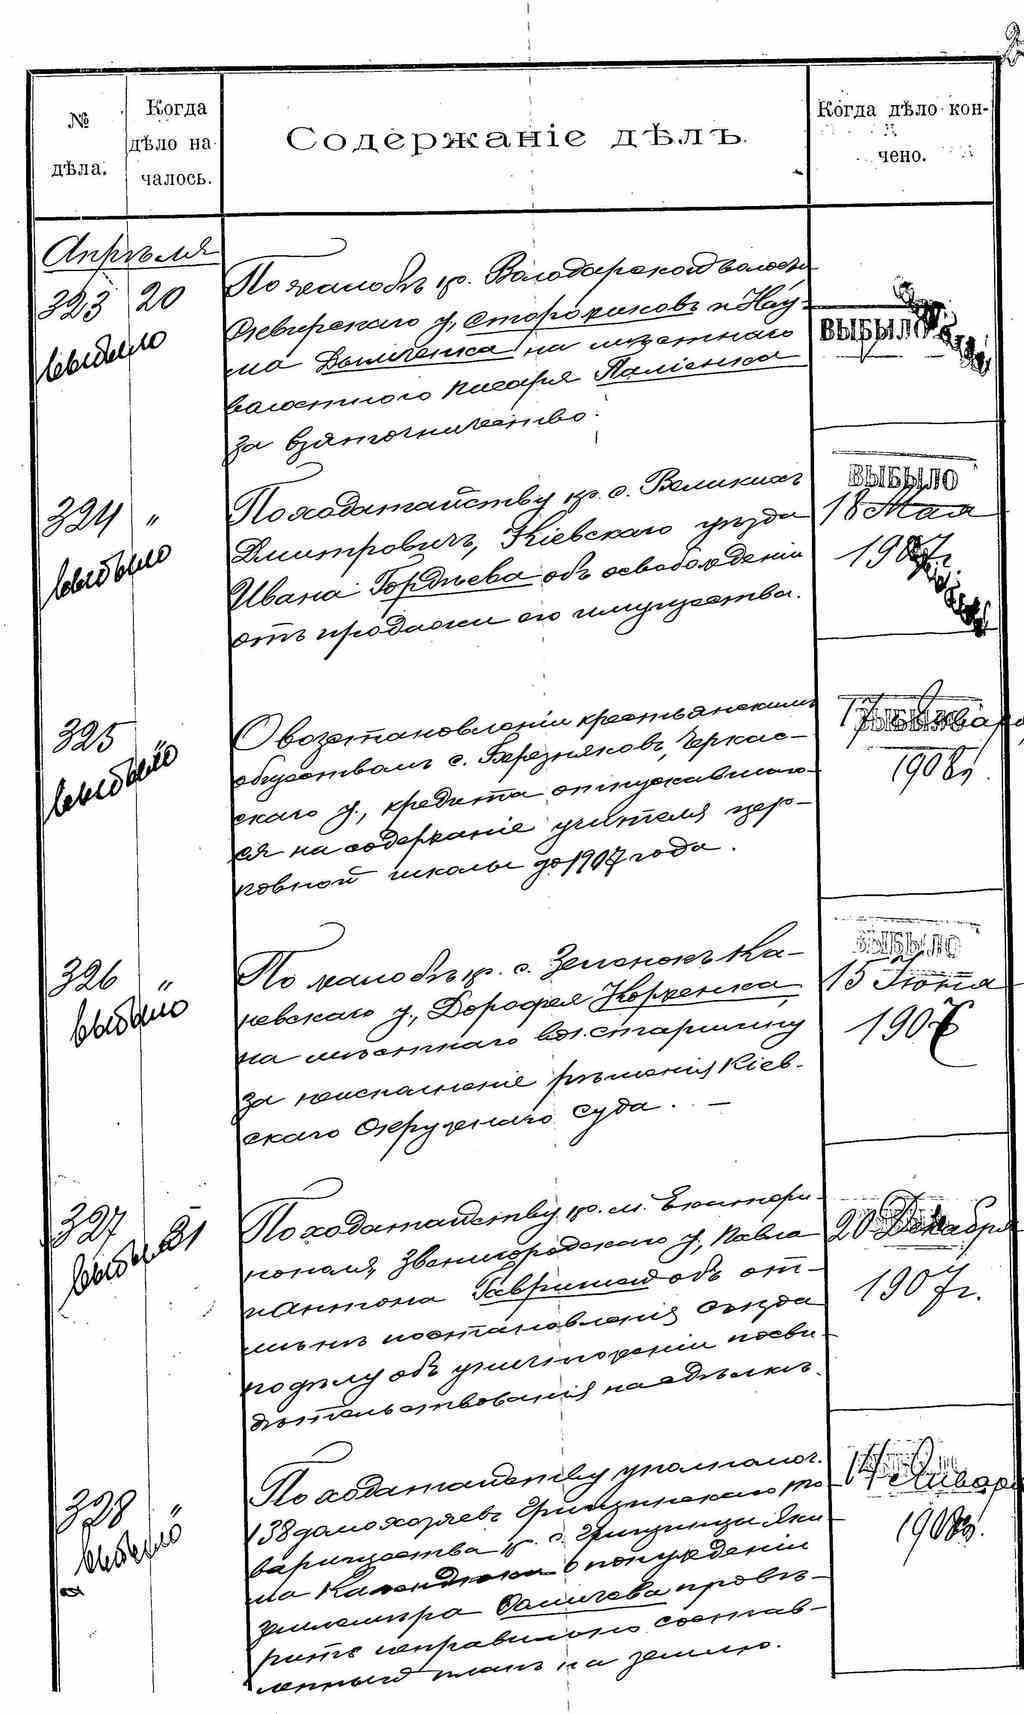 2
№ дѣла.
Когда дѣло началось.
Содержаніе дѣлъ.
Когда дѣло кончено.
Апрѣля
323 20
выбыло
По жалобѣ кр. Володарской волости
Сквирскаго у., Сторожиковъ и Нау-
ма Дымченка на мѣстнаго
волостного писаря Паліенка
за взяточничество.
ВЫБЫЛО
324 "
выбыло
По ходатайству кр. с. Великихъ
Дмитровичъ, Кіевскаго уѣзда
Ивана Гордѣева объ освобожденіи
отъ продажи его имущества.
ВЫБЫЛО
18 Мая
1907г.
325 "
выбыло
О возстановленіи крестьянскимъ
обществомъ с. Березняковъ, Черкас-
скаго у., кредита отпускавшаго-
ся на содержаніе учителя цер-
ковной школы до 1907 года.
ВЫБЫЛО
17 Января
1908г.
326 "
выбыло
По жалобѣ кр. с. Зеленокъ Ка-
невскаго у., Дорофея Корженка
на мѣстнаго вол. старшину
за неисполненіе рѣшенія Кіев-
скаго Окружнаго суда. —
ВЫБЫЛО
15 Іюня
1907
327 21
выбыло
По ходатайству кр. м. Екатери-
нополя, Звенигородскаго у., Павла
и Антона Гавришей объ от-
мѣнѣ постановленія съѣзда
по дѣлу объ уничтоженіи посви-
дѣтельствованія на сдѣлкѣ.
20 Декабря
1907г.
328 "
выбыло
По ходатайству уполномоч.
138 домохозяевъ Григинскаго то-
варищества кр. с. Яки-
ма о понужденіи
землемѣра Осличева провѣ-
рить неправильно состав-
ленный планъ на землю.
14 Января
1908г.